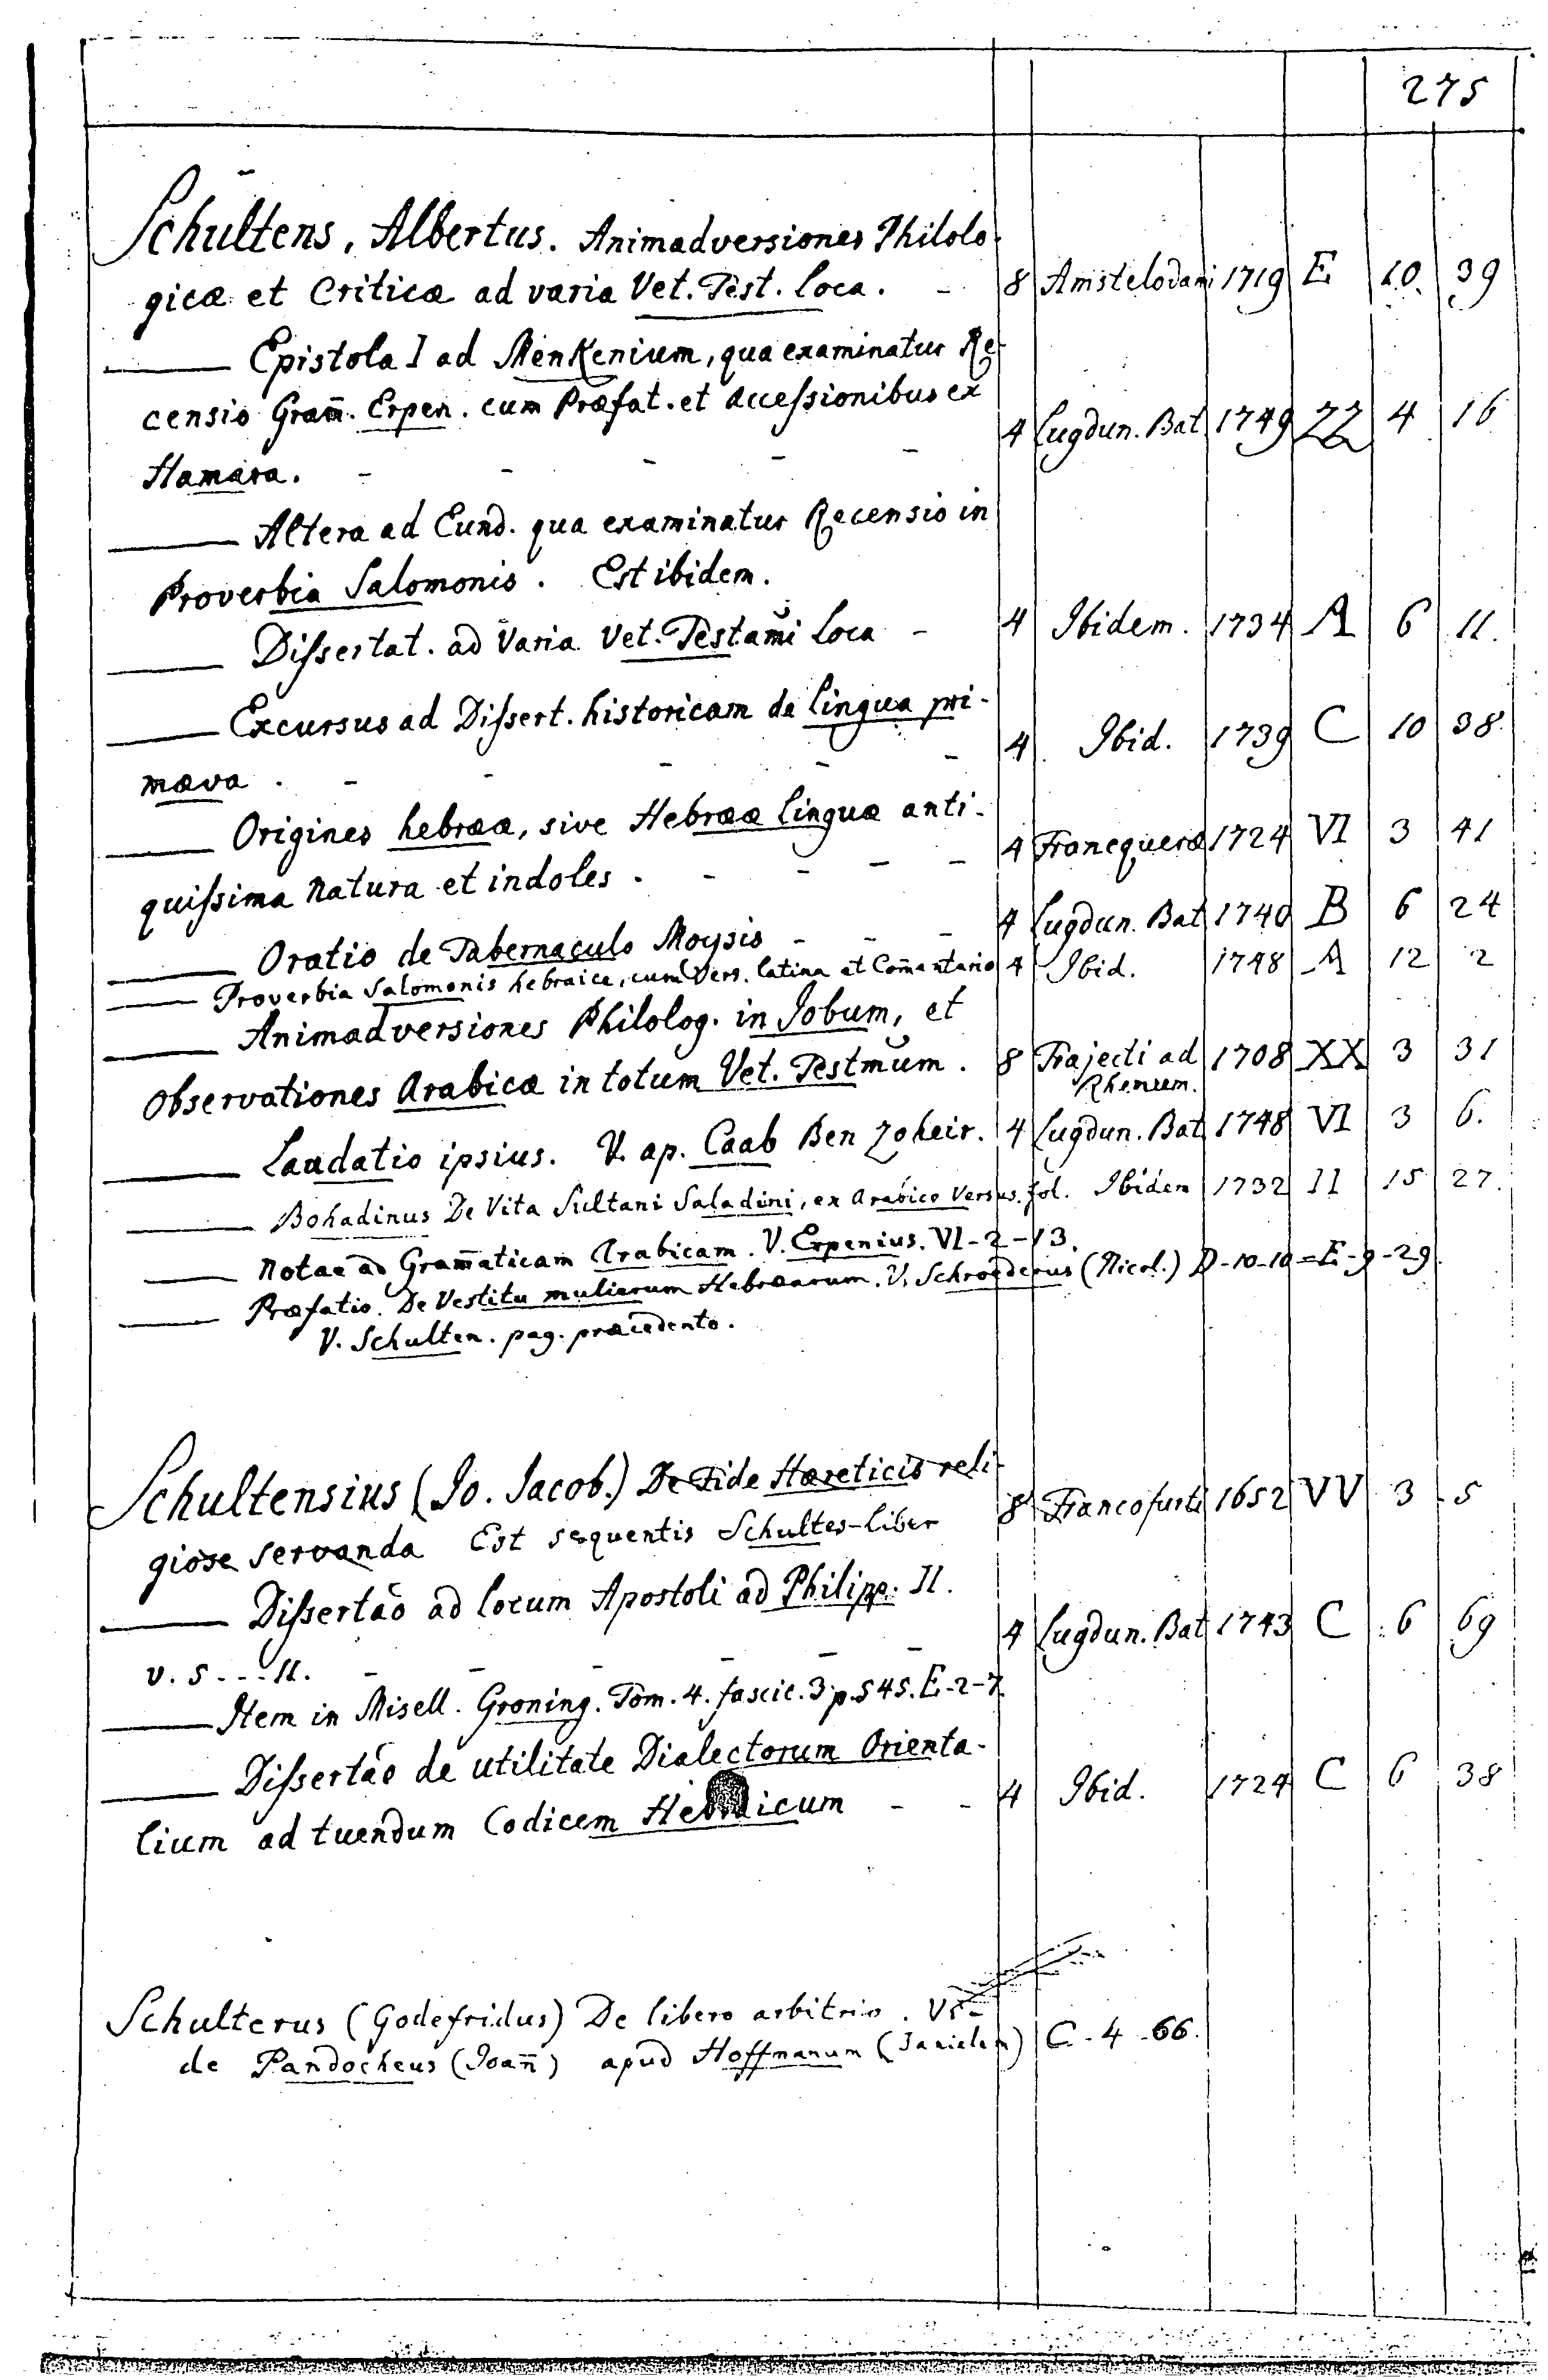 275
Schultens, Albertus. Animadversiones Philolo-
gicæ et Criticæ ad varia Vet. Test. Loca. - 8 Amstelodami 1719 E 10. 39
—— Epistola I ad Menkenium, qua examinatur Re-
censio Gram̄. Erpen. cum Præfat. et accessionibus ex 4 Lugdun. Bat 1749 ZZ 4 16
Hamasa. - - - - -
—— Altera ad Eund. qua examinatur Recensio in
Proverbia Salomonis. Est ibidem.
—— Dissertat. ad Varia Vet. Testam̃i Loca - 4 Ibidem. 1734 A 6 11.
—— Excursus ad Dissert. historicam de lingua pri-
mæva. - - - - - 4 Ibid. 1739 C 10 38.
—— Origines hebrææ, sive Hebrææ linguæ anti-
quissima natura et indoles. - - - - 4 Franequeræ 1724 VI 3 41
—— Oratio de Tabernaculo Moysis - - - 4 Lugdun. Bat 1740 B 6 24
—— Proverbia Salomonis hebraice, cum Vers. latina et Com̄entario 4 Ibid. 1748 A 12 2
—— Animadversiones Philolog. in Jobum, et
observationes Arabicæ in totum Vet. Testm̃um. 8 Trajecti ad 1708 XX 3 31
Rhenum.
—— Laudatio ipsius. V. ap. Caab Ben Zoheir. 4 Lugdun. Bat 1748 VI 3 6.
—— Bohadinus De Vita Sultani Saladini, ex Arabico Versus. fol. Ibidem 1732 II 15 27.
—— Notae ad Gram̄aticam Arabicam. V. Erpenius. VI-2-13.
—— Præfatio. De Vestitu mulierum Hebræarum. V. Schroederus (Nicol.) D-10-10=E-9-29.
V. Schulten. pag. præcedente.
Schultensius (Jo. Jacob.) De Fide Hæreticis reli-
giose servanda Est sequentis Schultes-liber 8 Francofurti 1652 VV 3 5
—— Dissertão ad locum Apostoli ad Philipp. II.
v. 5 - - - 11. - - - - - 4 Lugdun. Bat 1743 C 6 69
—— Item in Misell. Groning. Tom. 4. fascic. 3 p. 545. E-2-7.
—— Dissertão de utilitate Dialectorum Orienta-
lium ad tuendum Codicem Hebraicum - - 4 Ibid. 1724 C 6 38
Schulterus (Godefridus) De libero arbitrio. Vi-
de Pandocheus (Joan̄) apud Hoffmanum (Danielem) C-4-66.